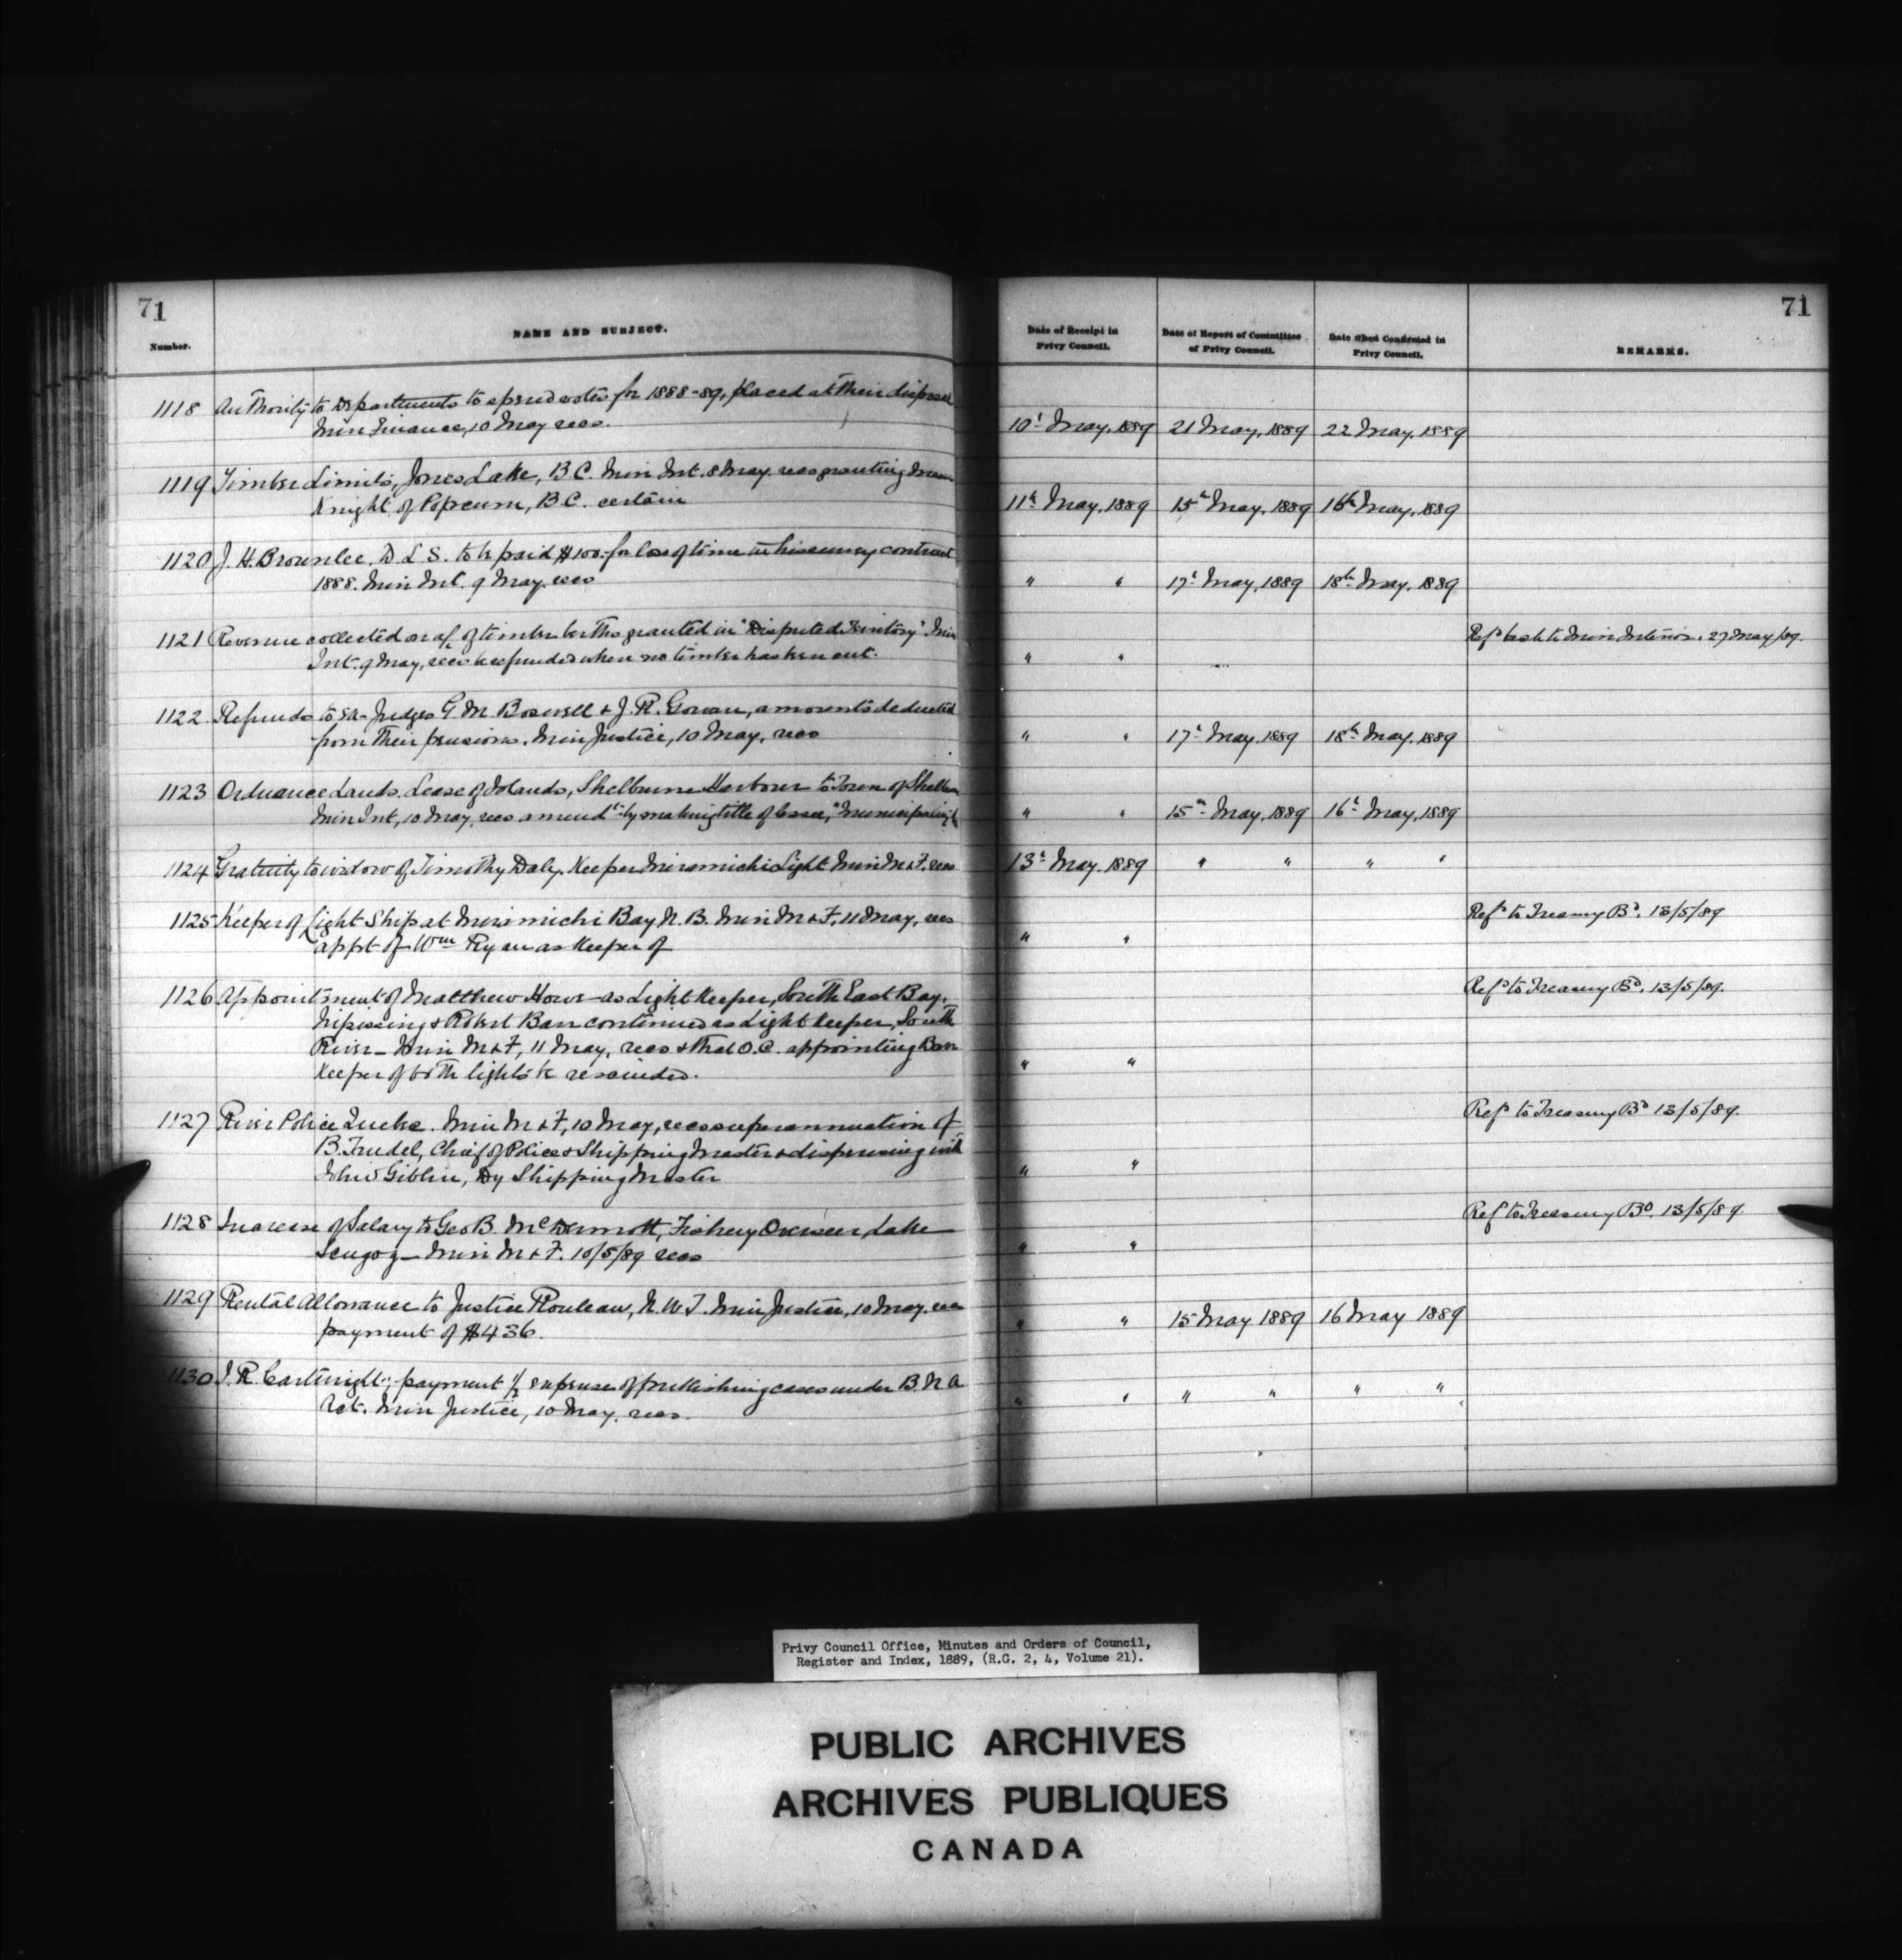 71
71
Number.
NAME AND SUBJECT.
Date of Receipt in
Privy Council.
Date of Report of Committee
of Privy Council.
Date when Confirmed in
Privy Council.
REMARKS.
1118 Authority to Departments to spend votes for 1888-89, placed at their disposal
Min Finance, 10 May recs.
10t May, 1889 21 May, 1889 22 May, 1889
1119 Timber Limits, Jones Lake, B.C. Min Int. 8 May. recs granting
Knight of Popcum, B.C. certain
11th May, 1889 15th May, 1889 16th May, 1889
1120 J. H. Brownlee, D L S. to be paid $100. for loss of time in his survey contract
1888. Min Int. 9 May. recs
" " 17t May, 1889 18th May, 1889
1121 Revenue collected on a/c of timber berths granted in "Disputed Territory". Min
Int. 9 May, recs be refunded when no timber has been cut.
" "
Refd back to Min Interior. 27 May/89.
1122 Refunds to Ex-Judges G. M. Boswell & J. R. Gowan, amounts deducted
from their pensions. Min Justice, 10 May, recs
" " 17t May. 1889 18th May. 1889
1123 Ordnance Lands. Lease of Islands, Shelburne Harbour to Town of
Min Int, 10 May, recs amendt by making title of lessee,
" " 15th May, 1889 16t May, 1889
1124 Gratuity to widow of Timothy Daly, Keeper Miramichi Light Min M & F. recs
13t May. 1889 " " " "
1125 Keeper of Light Ship at Miramichi Bay N. B. Min M & F, 11 May, recs
appt of Wm Ryan as Keeper of
" "
Refd to Treasury Bd. 13/5/89
1126 Appointment of Matthew Howe as Light Keeper, South East Bay,
Nipissing & Robert Barr continued as Light Keeper, South
River - Min M & F, 11 May, recs & that O.C. appointing Barr
Keeper of both lights be rescinded.
" "
Refd to Treasury Bd. 13/5/89.
1127 River Police Quebec. Min M & F, 10 May, recs superannuation of
B. Trudel, Chief of Police & Shipping Master & dispensing with
John Giblin, Dy Shipping Master
" "
Refd to Treasury Bd 13/5/89.
1128 Increase of Salary to Geo B. McDermott, Fishery Overseer, Lake
Scugog - Min M & F. 10/5/89 recs
" "
Ref to Treasury Bd. 13/5/89
1129 Rental Allowance to Justice Rouleau, N. W. T. Min Justice, 10 May. recs
payment of $436.
" " 15 May 1889 16 May 1889
1130 J. R. Cartwright; payment 1/2 expense of publishing cases under B N A
Act. Min Justice, 10 May, recs.
" " " " " "
Privy Council Office, Minutes and Orders of Council,
Register and Index, 1889, (R.G. 2, 4, Volume 21).
PUBLIC ARCHIVES
ARCHIVES PUBLIQUES
CANADA